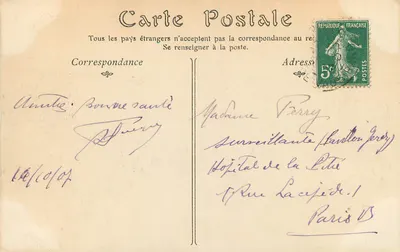 Carte Postale
Tous les pays étrangers n'acceptent pas la correspondance au re
Se renseigner à la poste.
Correspondance
Adress
REPUBLIQUE FRANÇAISE
5c
POSTES
Amitiés bonne santé
10/07
Madame Ferry
surveillante (Pavillon
Hôpital de la Pitié
1 Rue Lacépède 1
Paris